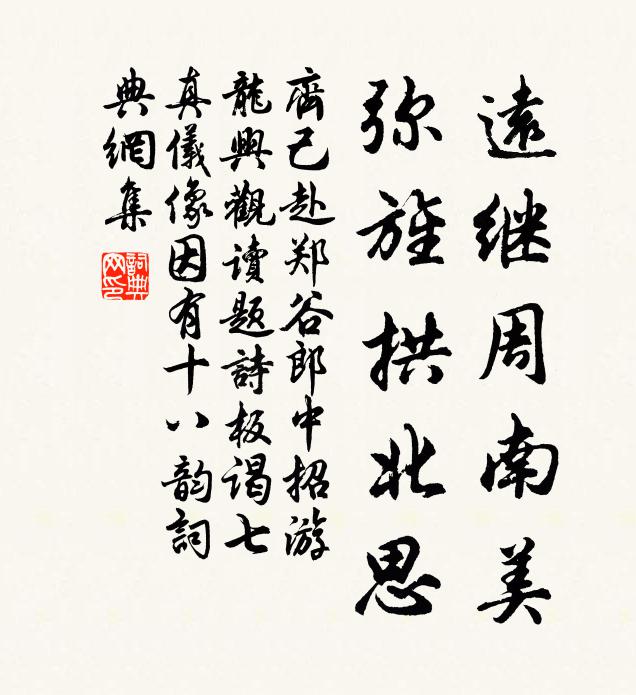 遠继周南美
弥旌拱北思
齊己赴郑谷郎中招游
龍興觀讀题詩板谒七
真儀像因有十八韵詞
典網集
詞典
网印